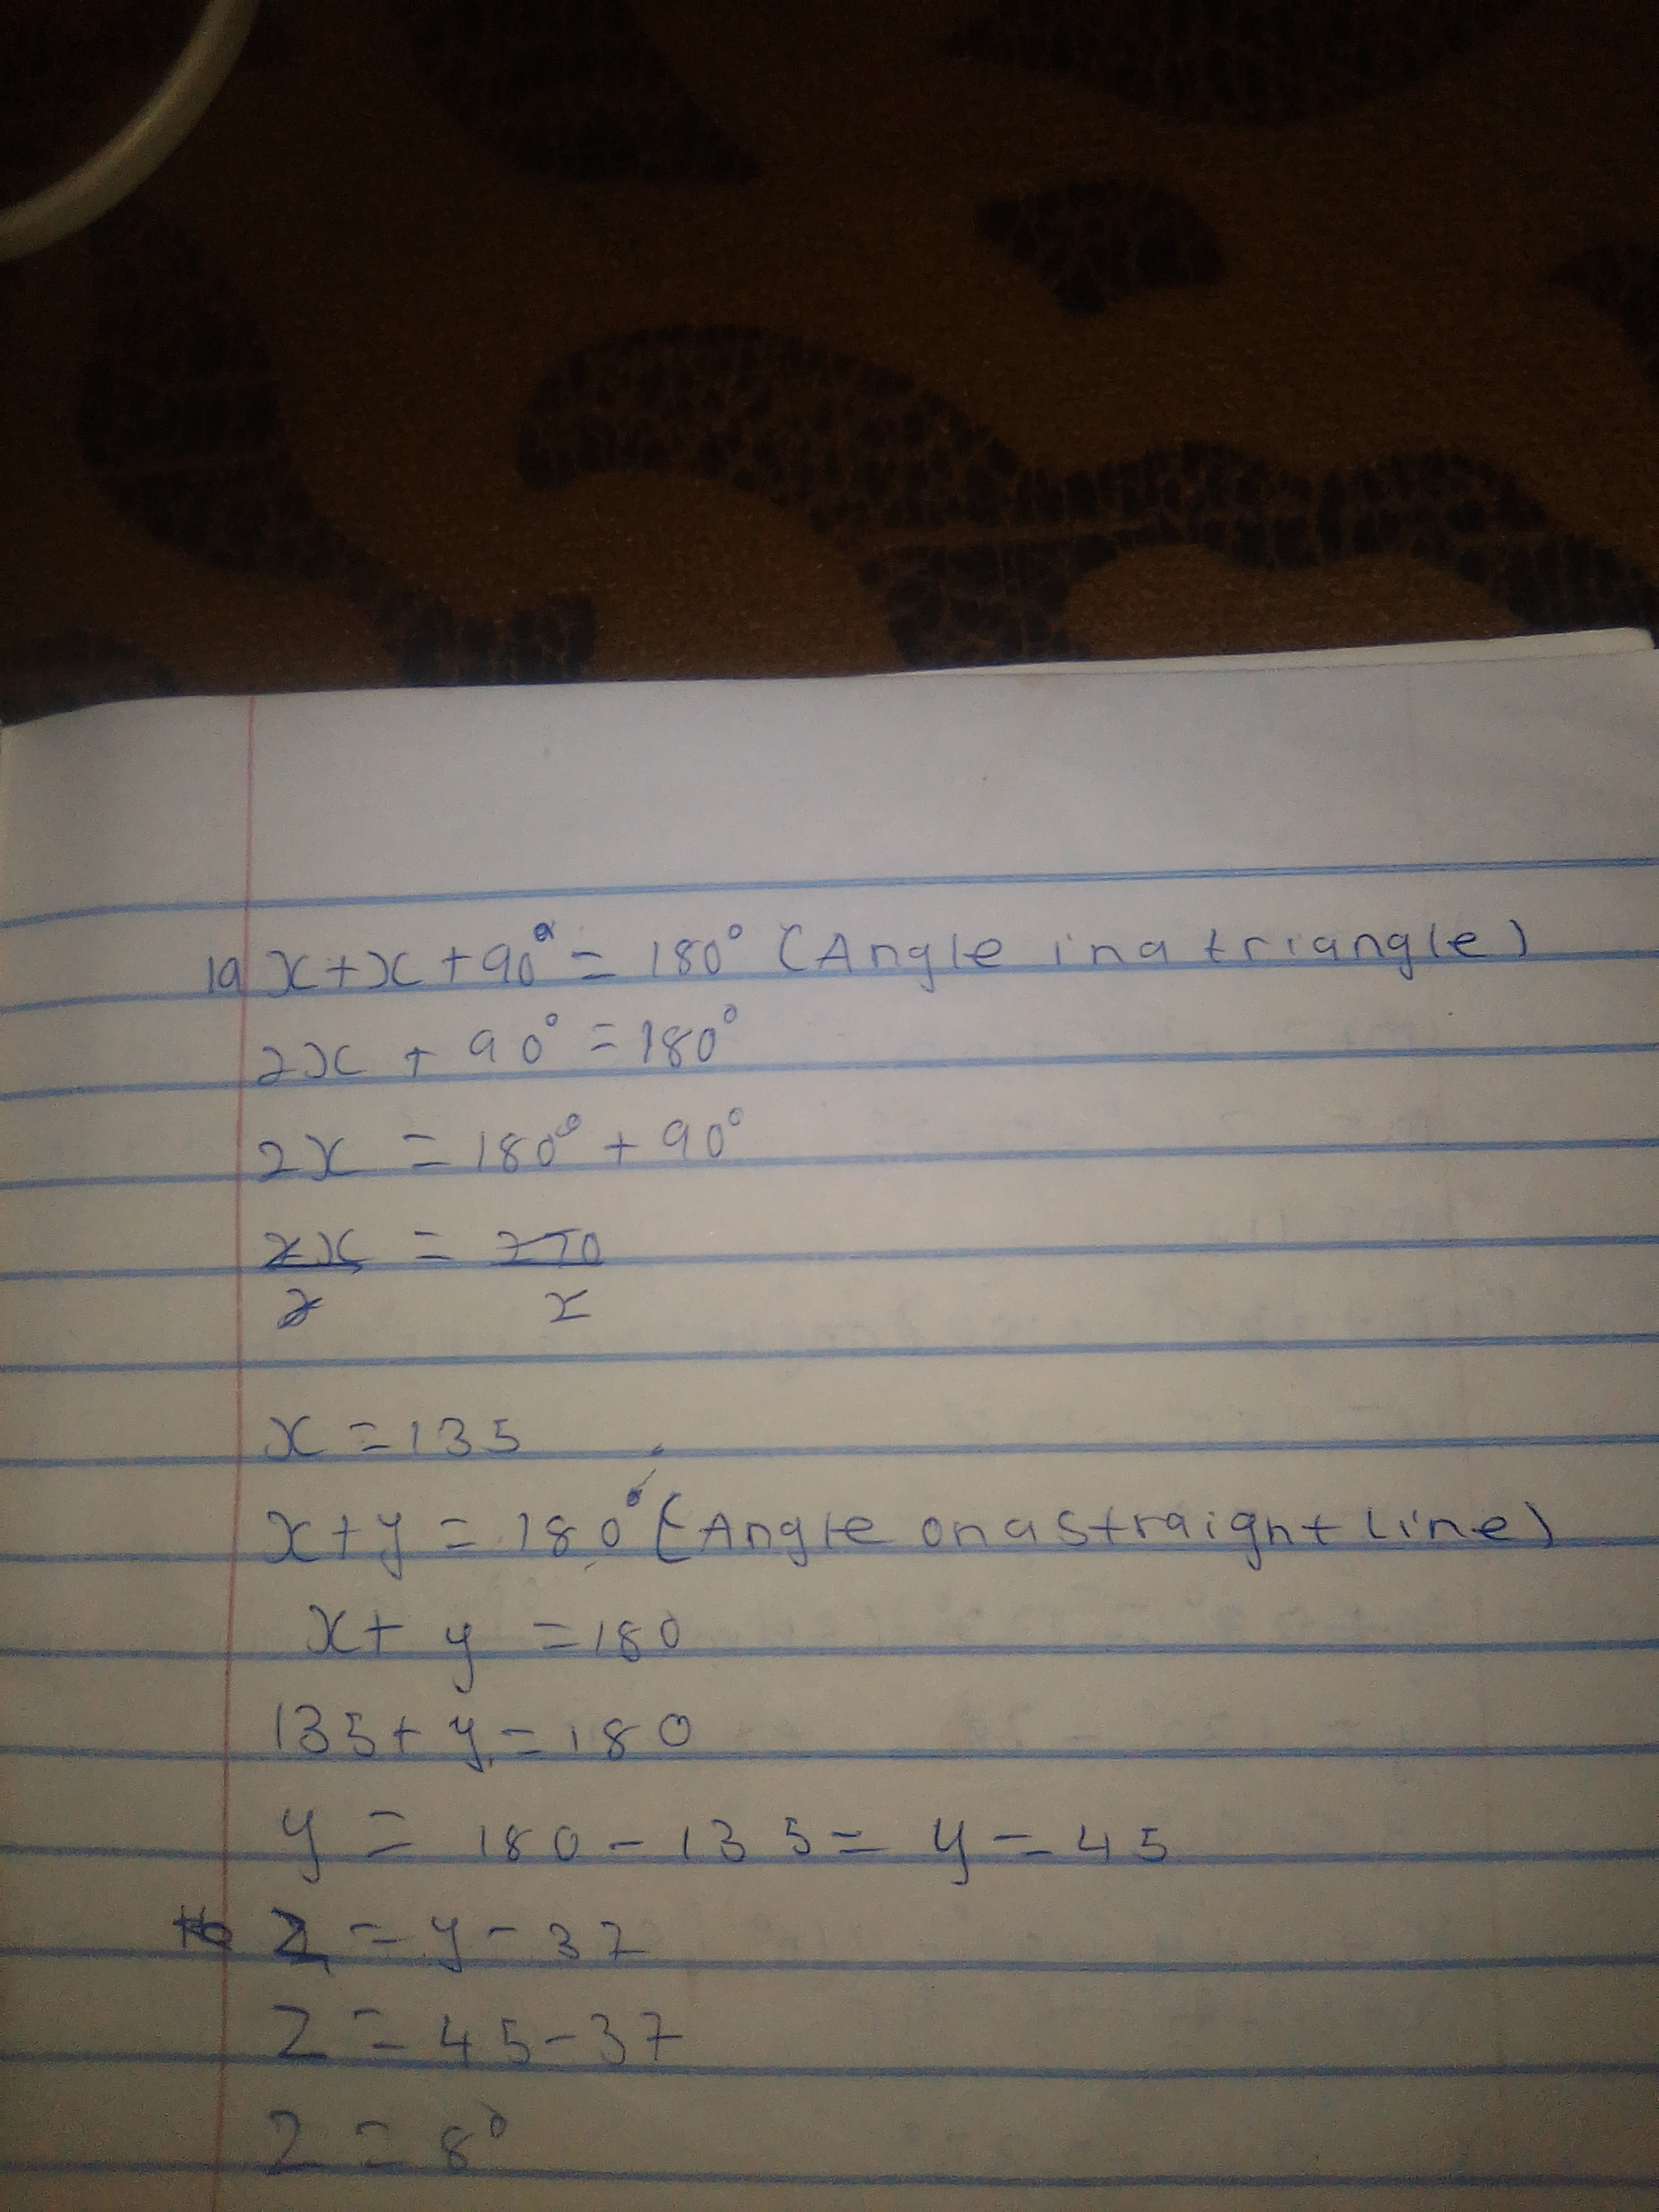 1a x+x+90° = 180° (Angle in a triangle)
2x + 90° = 180°
2x = 180° + 90°
2x = 270
2 2
x = 135
x+y = 180° (Angle on a straight line)
x+ y = 180
135+ y = 180
y = 180 - 135 = y = 45
z = y - 37
z = 45-37
z = 8°